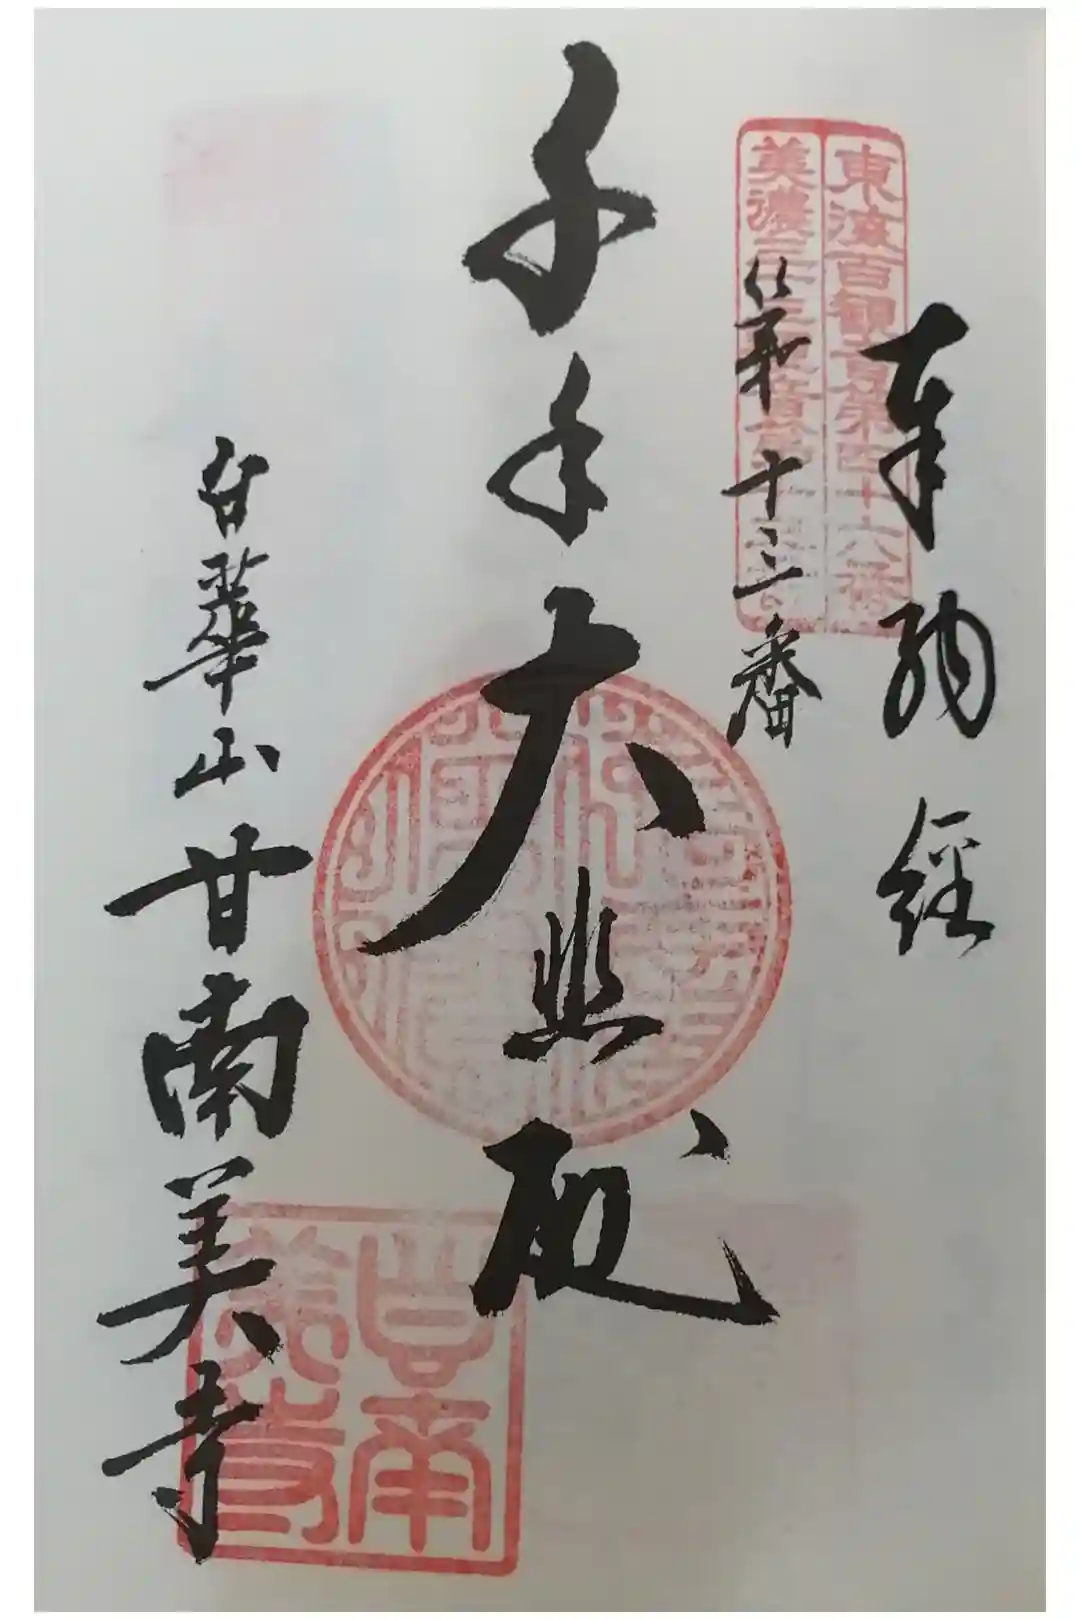 奉納経
東海百観音第四十六番
美濃三十三霊場第十三番
第十三番
千手大悲殿
白華山甘南美寺
甘南美寺